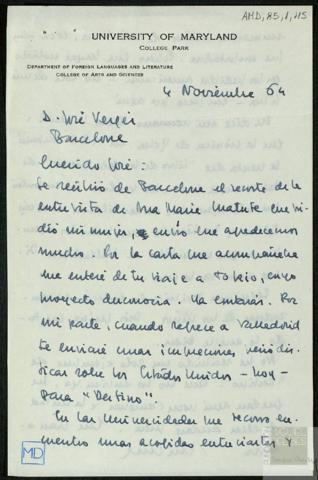 AMD,85,1,115
UNIVERSITY OF MARYLAND
COLLEGE PARK
DEPARTMENT OF FOREIGN LANGUAGES AND LITERATURE
COLLEGE OF ARTS AND SCIENCES
4 Noviembre 64
D. José Vergés
Barcelona
Querido José:
Se recibió de Barcelona el recorte de la
entrevista de Ana María Matute que pi-
dió mi mujer, envío que agradecemos
mucho. Por la carta que acompañaba
me enteré de tu viaje a Tokio, cuyo
proyecto desconocía. Ya contarás. Por
mi parte, cuando regrese a Valladolid
te enviaré unas impresiones periodís-
ticas sobre los Estados Unidos - hoy -
para "Destino".
En las Universidades que recorro en-
cuentro unas acogidas entusiastas y
MD